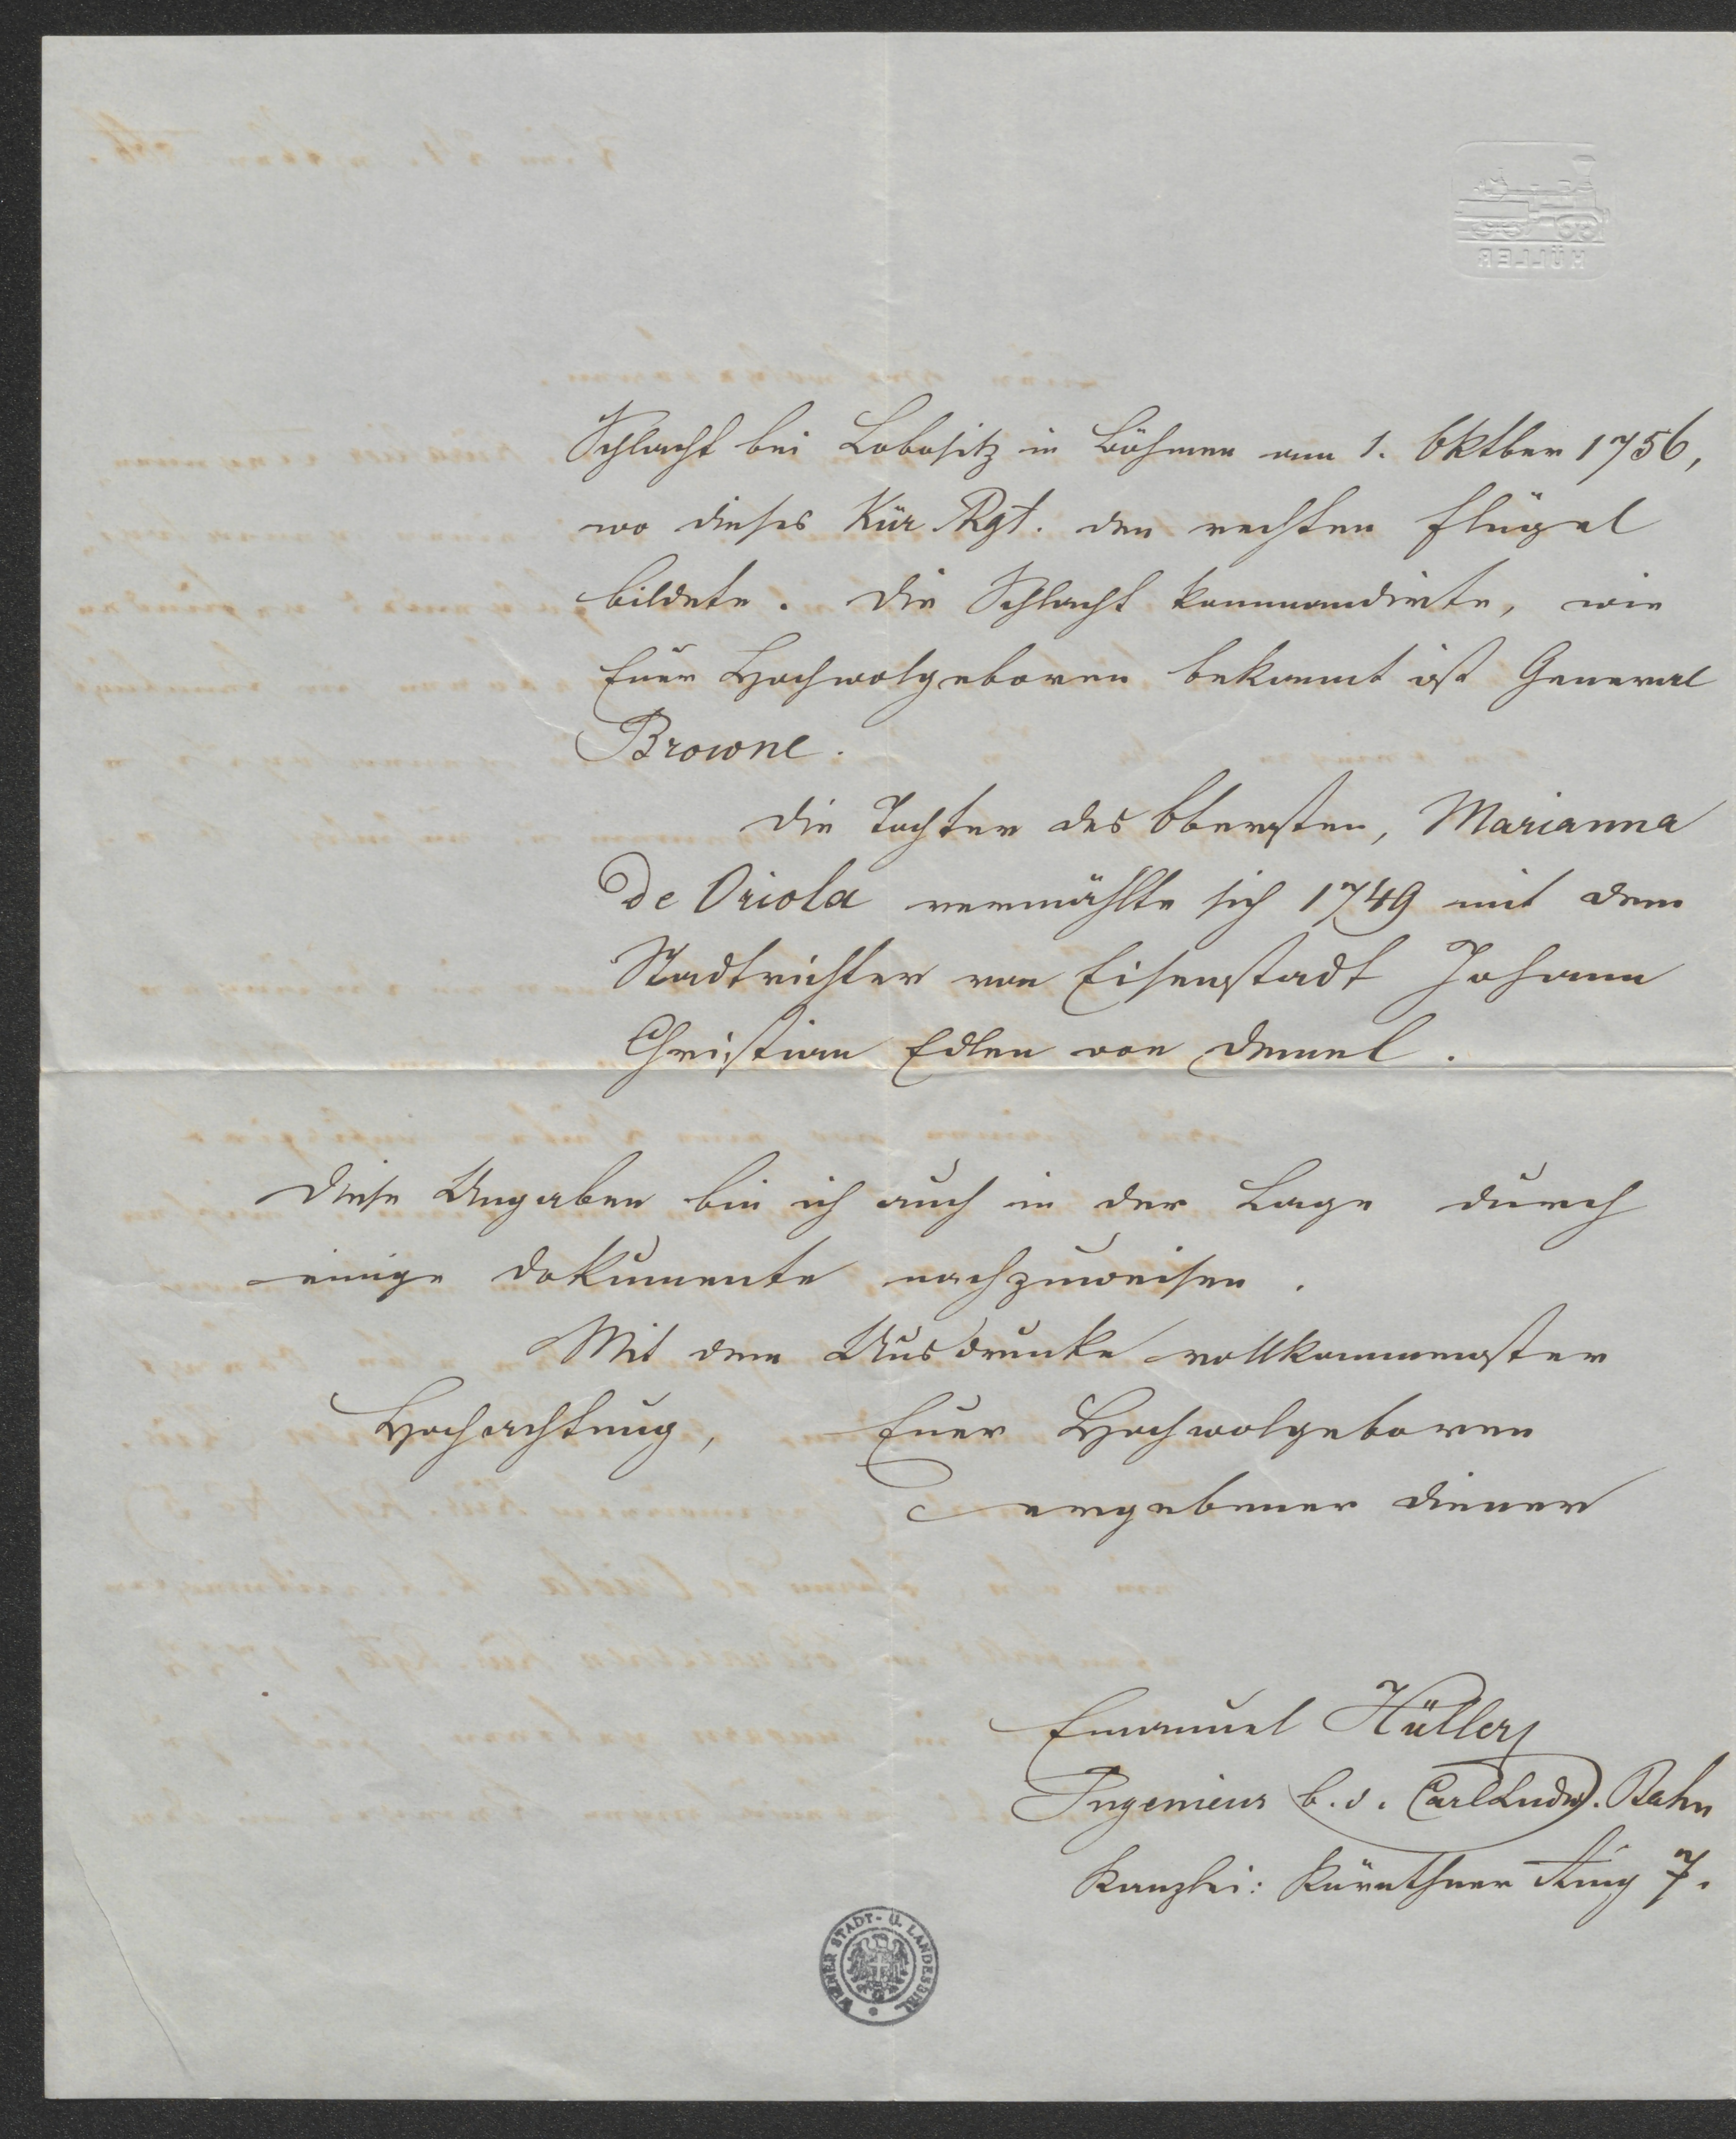 Schlacht bei Lobositz in Böhmen am 1. Oktber 1756,
wo dieses Kür. Rgt. den rechten Flügel
bildete. Die Schlacht kommandirte, wie
Euer Hochwolgeboren bekannt ist General
Browne.
Die Tochter des Obersten, Marianna
De Oriola vermählte sich 1749 mit dem
Stadtrichter von Eisenstadt Johann
Christian Edlen von Demel.
Diese Angaben bin ich auch in der Lage durch
einige Dokumente nachzuweisen.
Mit dem Ausdrucke vollkommenster
Hochachtung, Euer Hochwolgeboren
ergebener Diener
Emanuel Hüller
Ingenieur b. d. Carl Ludw. Bahn
Kanzlei: Kärnthner Ring 7.
WIENER STADT- U. LANDESBIBL.
HÜLLER